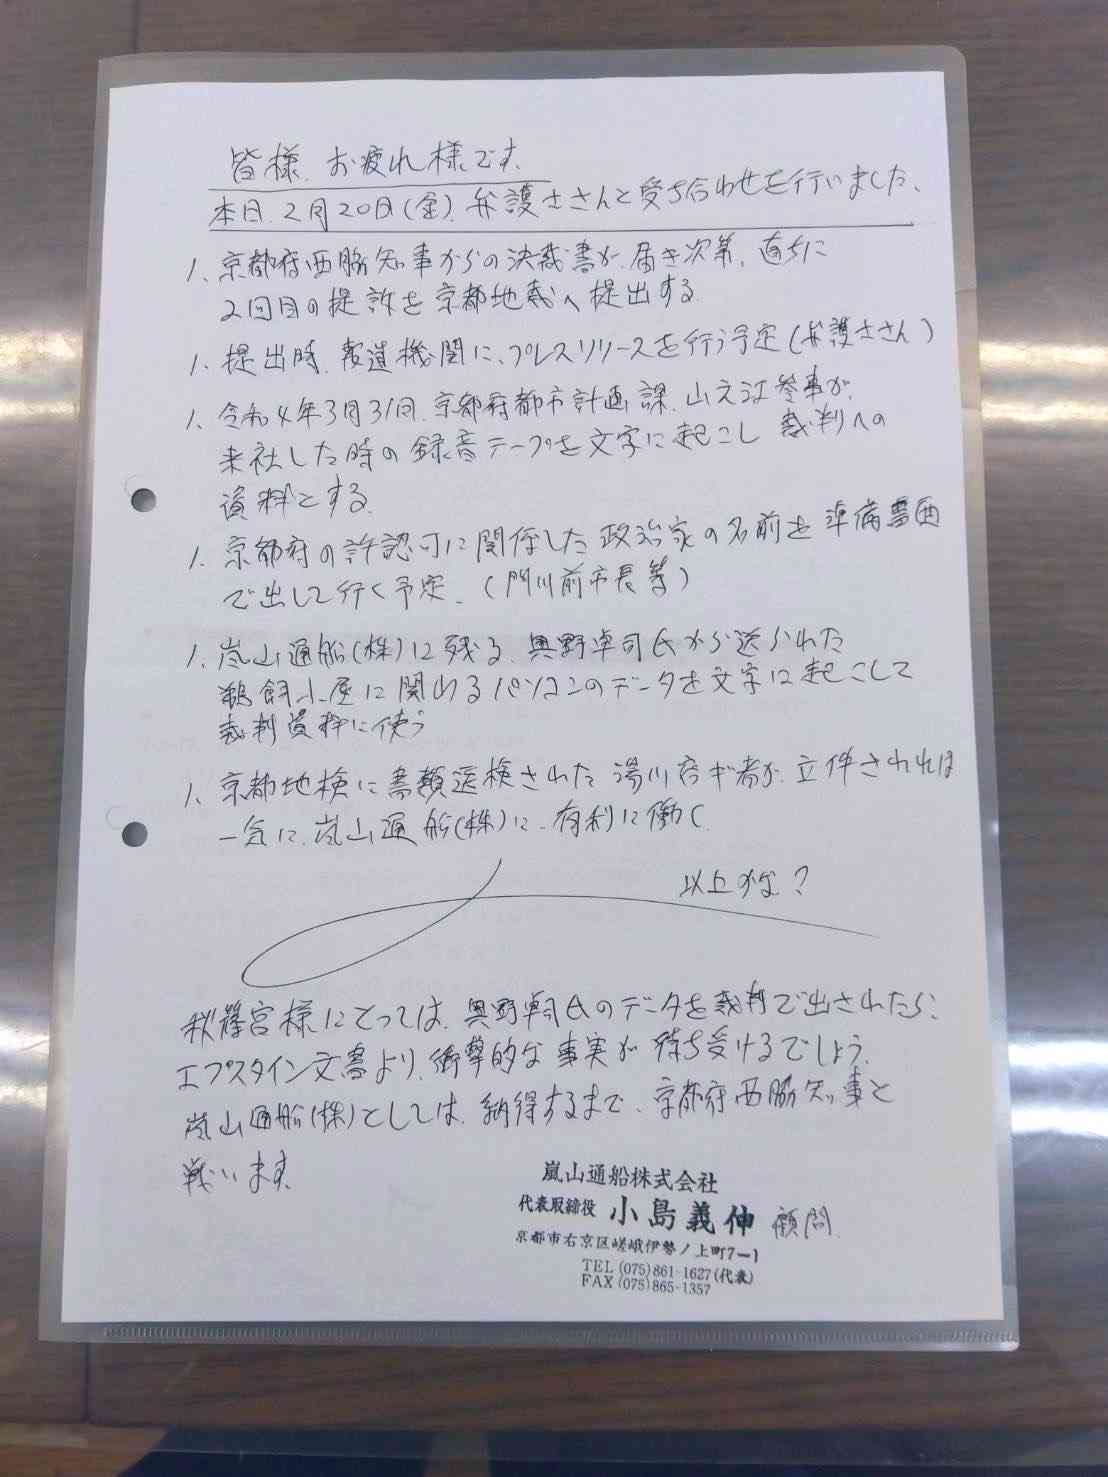 皆様、お疲れ様です。
本日、2月20日(金)、弁護士さんと受ち合わせを行いました、
1、京都府西脇知事からの決裁書が、届き次第、直ちに
2回目の提訴を京都地裁へ提出する
1、提出時、報道機関に、プレスリリースを行う予定(弁護士さん)
1、令和4年3月31日、京都府都市計画課、山之江参事が、
来社した時の録音テープを文字に起こし 裁判への
資料とする。
1、京都府の許認可に関係した政治家の名前を準備書面
で出して行く予定、(門川前市長等)
1、嵐山通船(株)に残る、奥野卓司氏から送られた
鵜飼小屋に関わるパソコンのデータを文字に起こして
裁判資料に使う
1、京都地検に書類送検された湯川 が、立件されれば
一気に、嵐山通船(株)に、有利に働く
以上かな?
秋篠宮様にとっては、奥野卓司氏のデータを裁判で出されたら、
エプスタイン文書より、衝撃的な事実が待ち受けるでしょう、
嵐山通船(株)としては、納得するまで、京都府西脇知事と
戦います。
嵐山通船株式会社
代表取締役 小島義伸 顧問
京都市右京区嵯峨伊勢ノ上町7-1
TEL(075)861-1627(代表)
FAX(075)865-1357